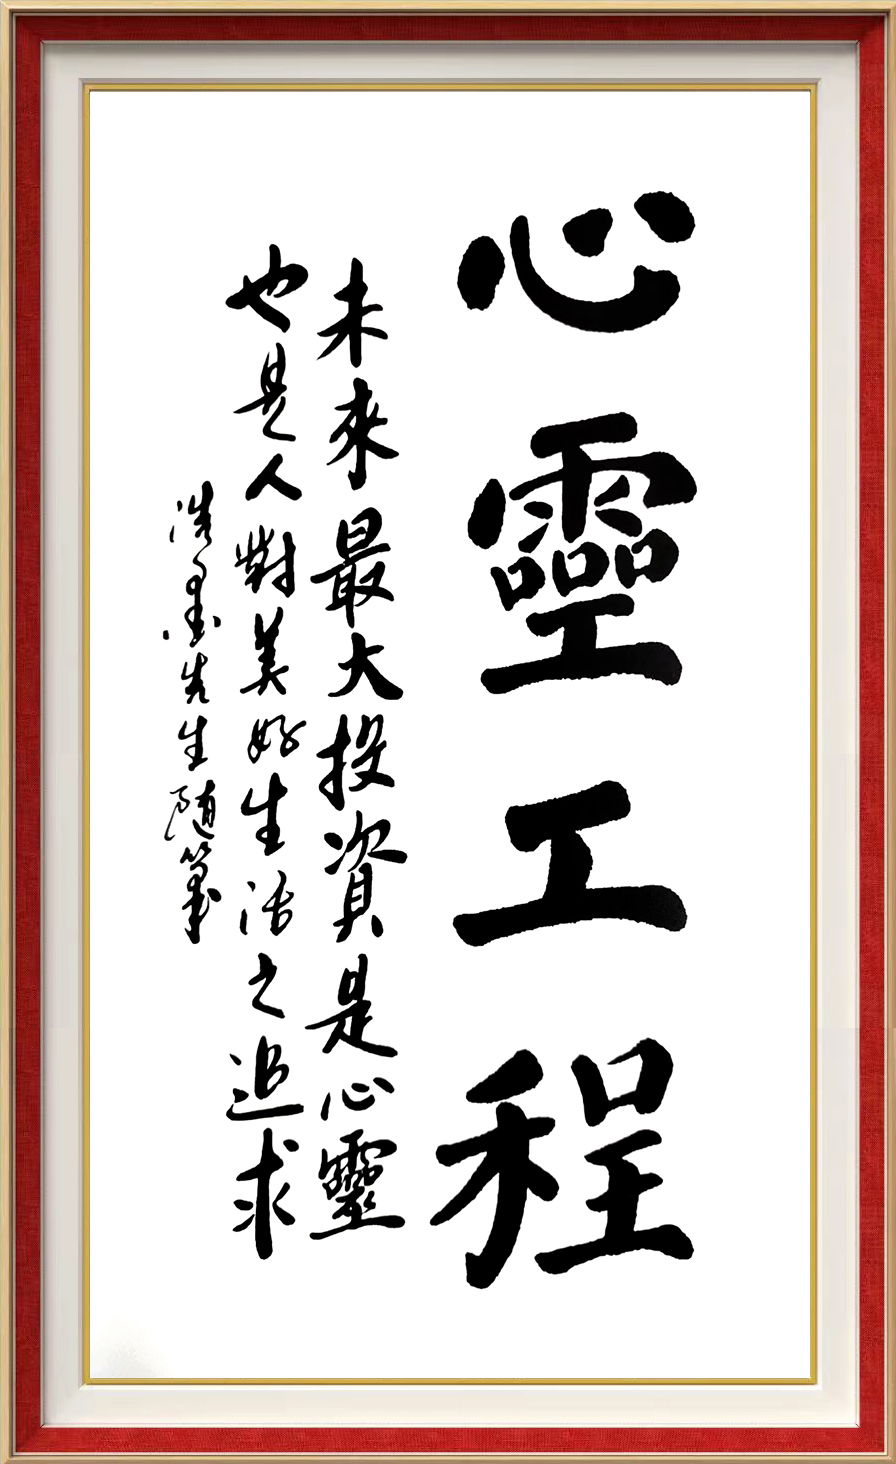 心靈工程
未來最大投資是心靈
也是人對美好生活之追求
浩墨先生随筆